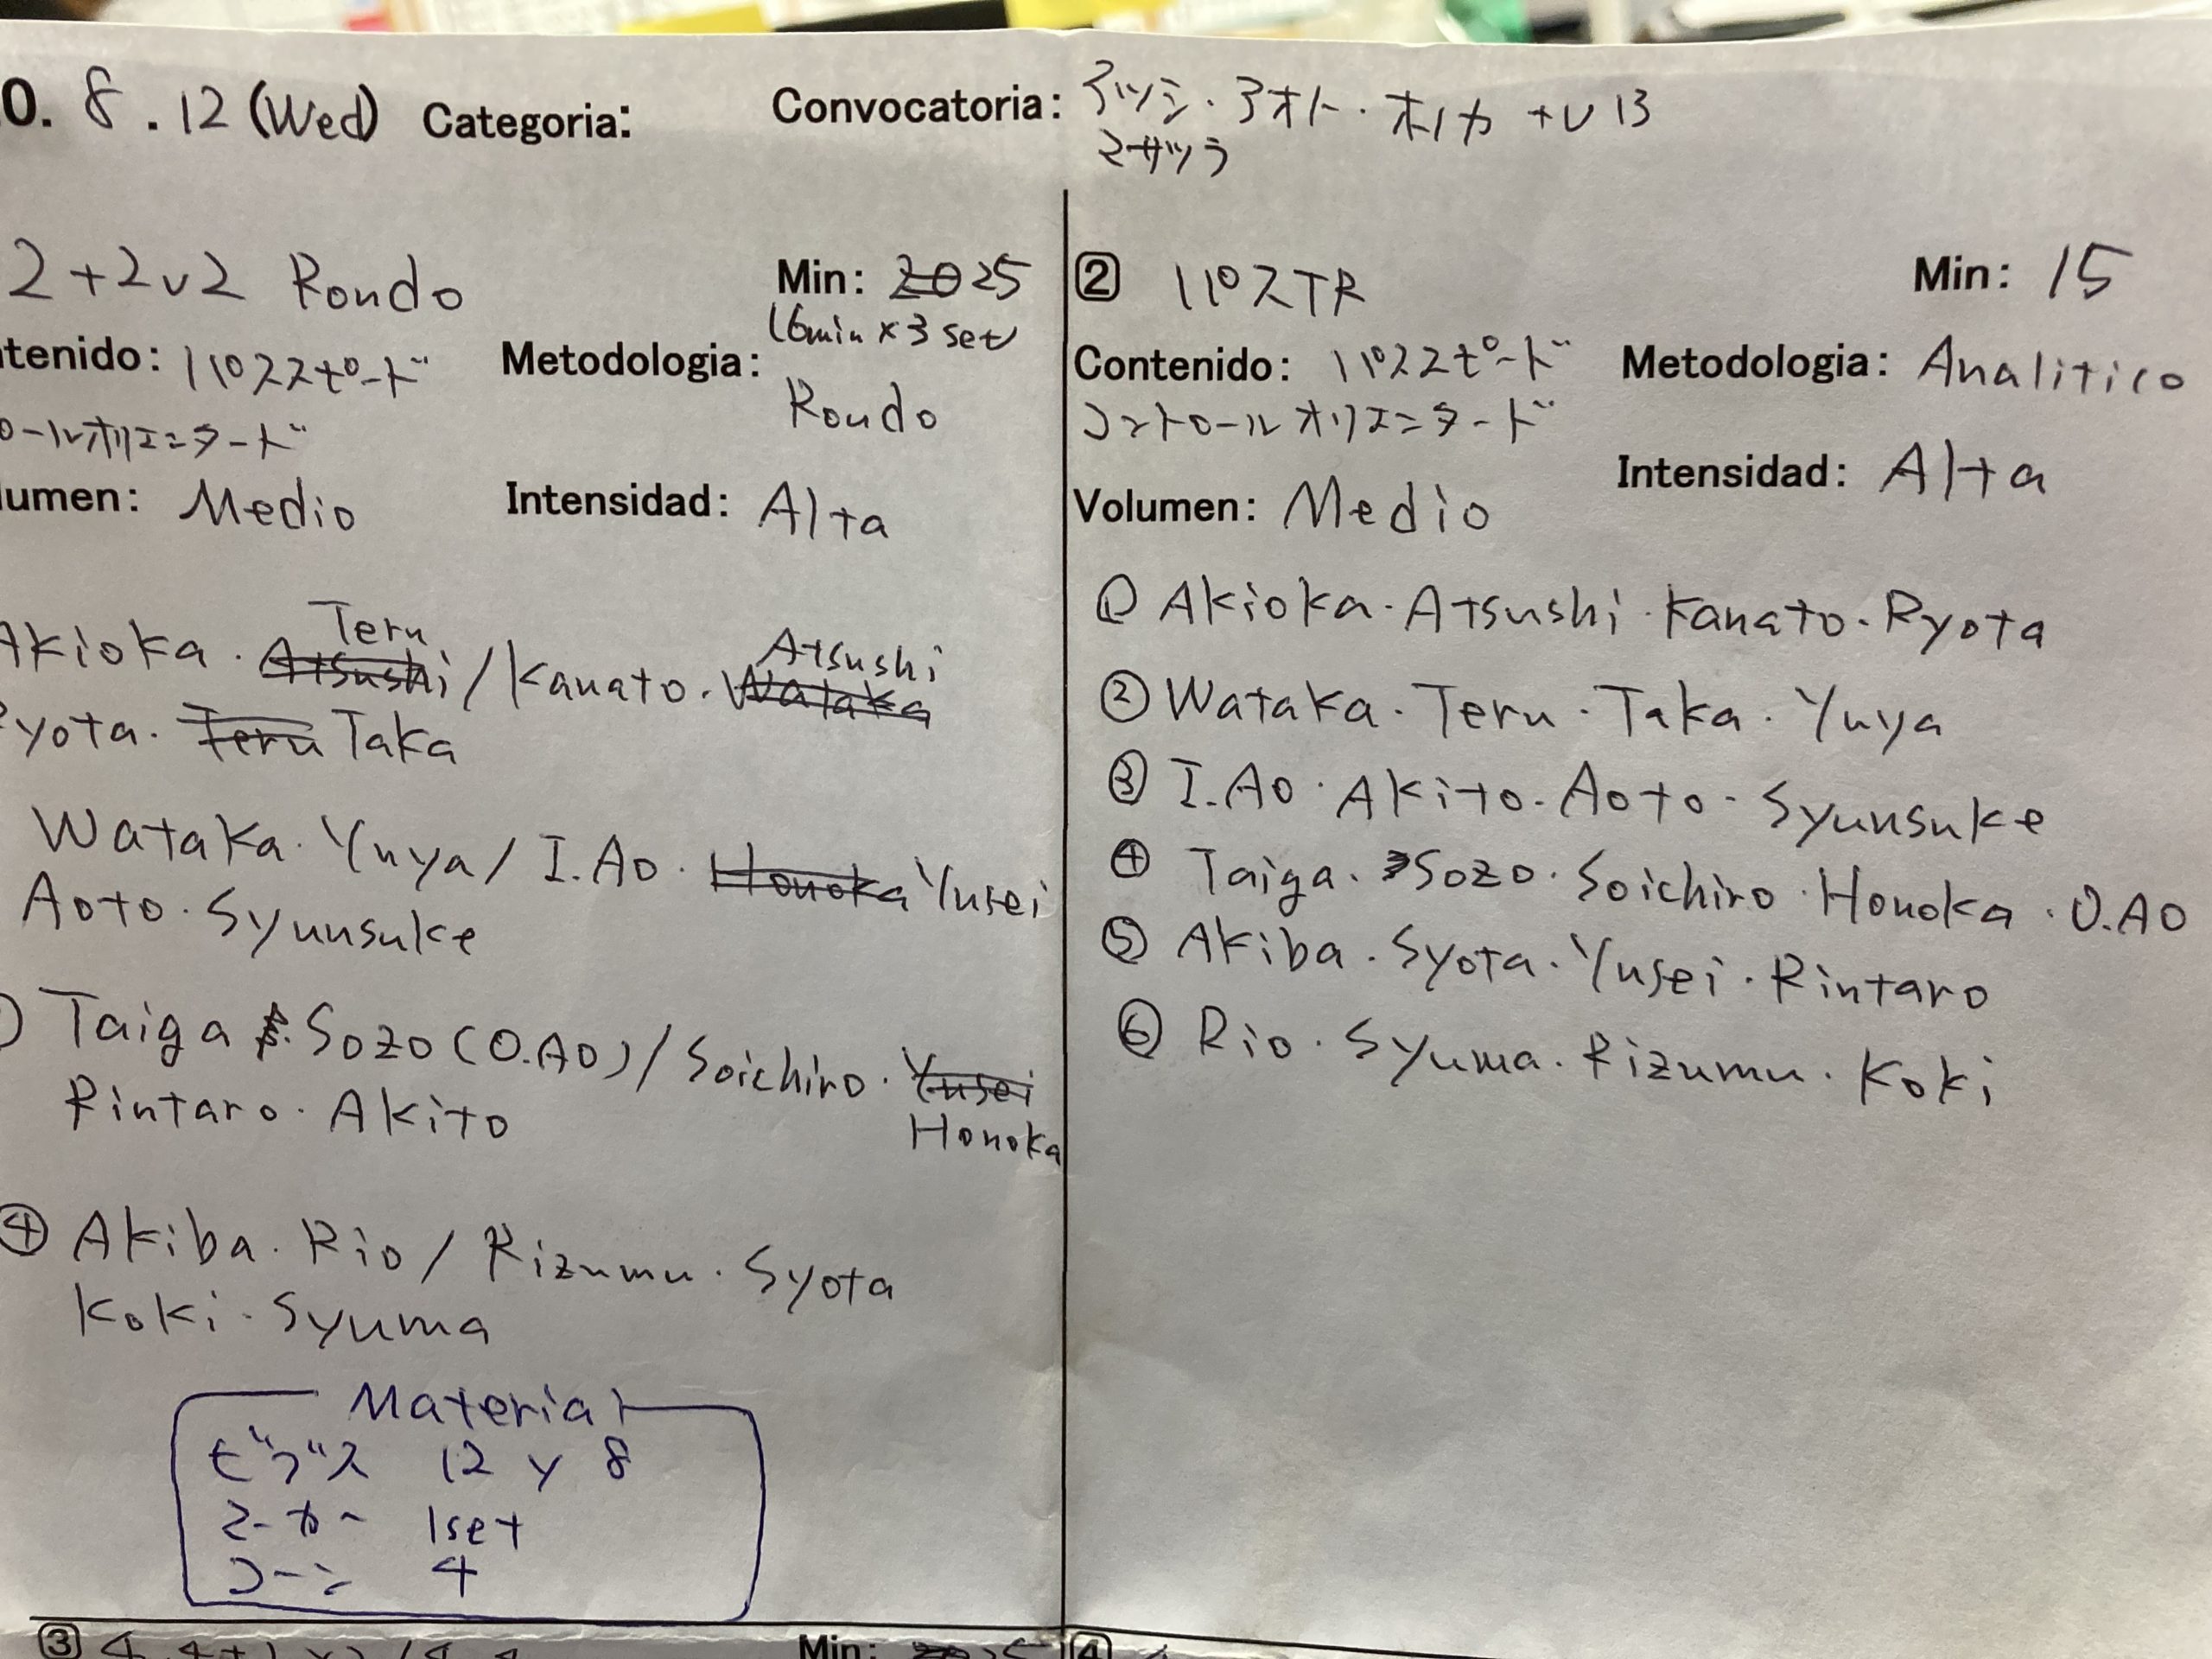 0. 8.12(Wed) Categoria: Convocatoria: アツシ・アオト・ホノカ +U13
マサツラ
2+2v2 Rondo Min: 20 25
(6min×3set)
tenido: パススピード Metodologia: Rondo
ロールオリエンタード
lumen: Medio Intensidad: Alta
Akioka・Atsushi Teru/Kanato・Wataka Atsushi
Ryota・Teru Taka
Wataka・Yuya/I.Ao・Honoka Yusei
Aoto・Syunsuke
Taiga・Sozo(O.Ao)/Soichiro・Yusei
Rintaro・Akito Honoka
④ Akiba・Rio/Rizumu・Syota
Koki・Syuma
Material
ビブス 12 y 8
マーカー 1set
コーン 4
② パスTR Min: 15
Contenido: パススピード Metodologia: Analitico
コントロールオリエンタード
Volumen: Medio Intensidad: Alta
① Akioka・Atsushi・Kanato・Ryota
② Wataka・Teru・Taka・Yuya
③ I.Ao・Akito・Aoto・Syunsuke
④ Taiga・Sozo・Soichiro・Honoka・O.Ao
⑤ Akiba・Syota・Yusei・Rintaro
⑥ Rio・Syuma・Rizumu・Koki
③ Min: ④